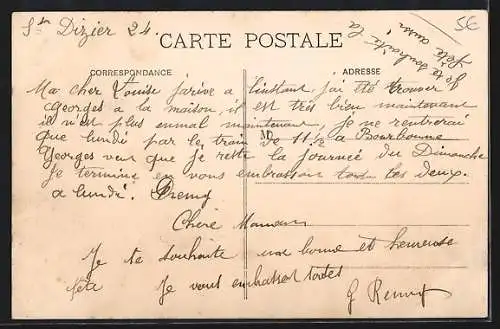 St Dizier 24
5€
je te souhaite la
fête aussi
CARTE POSTALE
CORRESPONDANCE
ADRESSE
Ma cher Louise j'arive a l'instant, j'ai été trouver
Georges a la maison, il est très bien maintenant
il n'est plus enmal maintenant, je ne rentrerai
que lundi par le train de 11 1/2 a Bourbonne
Georges veut que je reste la journée du Dimanche
Je termine en vous embrassant toutes les deux.
a lundi. Remy
Chère Maman
Je te souhaite une bonne et heureuse
fête Je vous embrasse toutes
G Remy